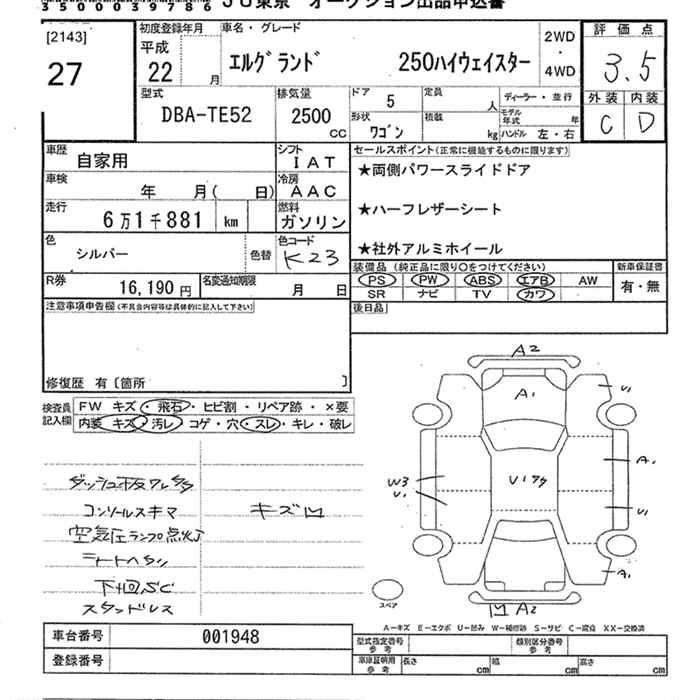 35000039786 JU東京 オークション出品申込書
[2143]
27
初度登録年月
平成
22 月
車名・グレード
エルグランド 250ハイウェイスター
2WD
・
4WD
評価点
3.5
外装 内装
C D
型式
DBA-TE52
排気量
2500
CC
ドア
5
定員
人
ディーラー・並行
形状
ワゴン
積載
kg
モデル年式
年
ハンドル 左・右
車歴
自家用
シフト
IAT
車検
年 月( 日)
冷房
AAC
走行
6万1千881 km
燃料
ガソリン
色
シルバー
色替
色コード
K23
R券
16,190 円
名変通知期限
月 日
セールスポイント(正常に機能するものに限ります)
★両側パワースライドドア
★ハーフレザーシート
★社外アルミホイール
装備品(純正品に限り○をつけてください)
PS PW ABS エアB AW
SR ナビ TV カワ
新車保証書
有・無
後日品
注意事項申告欄(不具合内容等は具体的に記入して下さい)
修復歴 有〔箇所 〕
検査員
記入欄
FW キズ・飛石・ヒビ割・リペア跡・×要
内装 キズ・汚レ・コゲ・穴・スレ・キレ・破レ
コンソールスキマ
キズ凹
空気圧ランプ点灯
スタンドレス
A2
A1
U1
A1
W3
U1
U1
A1
凹A2
スペア
A-キズ E-エクボ U-凹み W-補修跡 S-サビ C-腐食 XX-交換済
車台番号
001948
登録番号
型式指定番号
参考
類別区分番号
参考
車庫証明用
参考
長さ cm
幅 cm
高さ cm